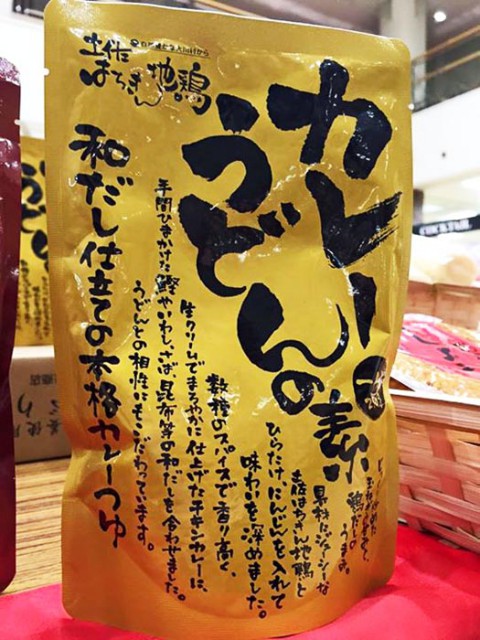 カレー
うどんの
素
土佐
はちきん地鶏
和だし仕立ての本格カレーつゆ
具材にジューシーな
土佐はちきん地鶏と
ひらたけ、にんじんを入れて
味わいを深めました。
数種のスパイスで香り高く、
生クリームでまろやかに仕上げたチキンカレーに、
手間ひまかけた鰹やいわし、さば、昆布等の和だしを合わせました。
うどんとの相性にもこだわっています。
COCKTAIL